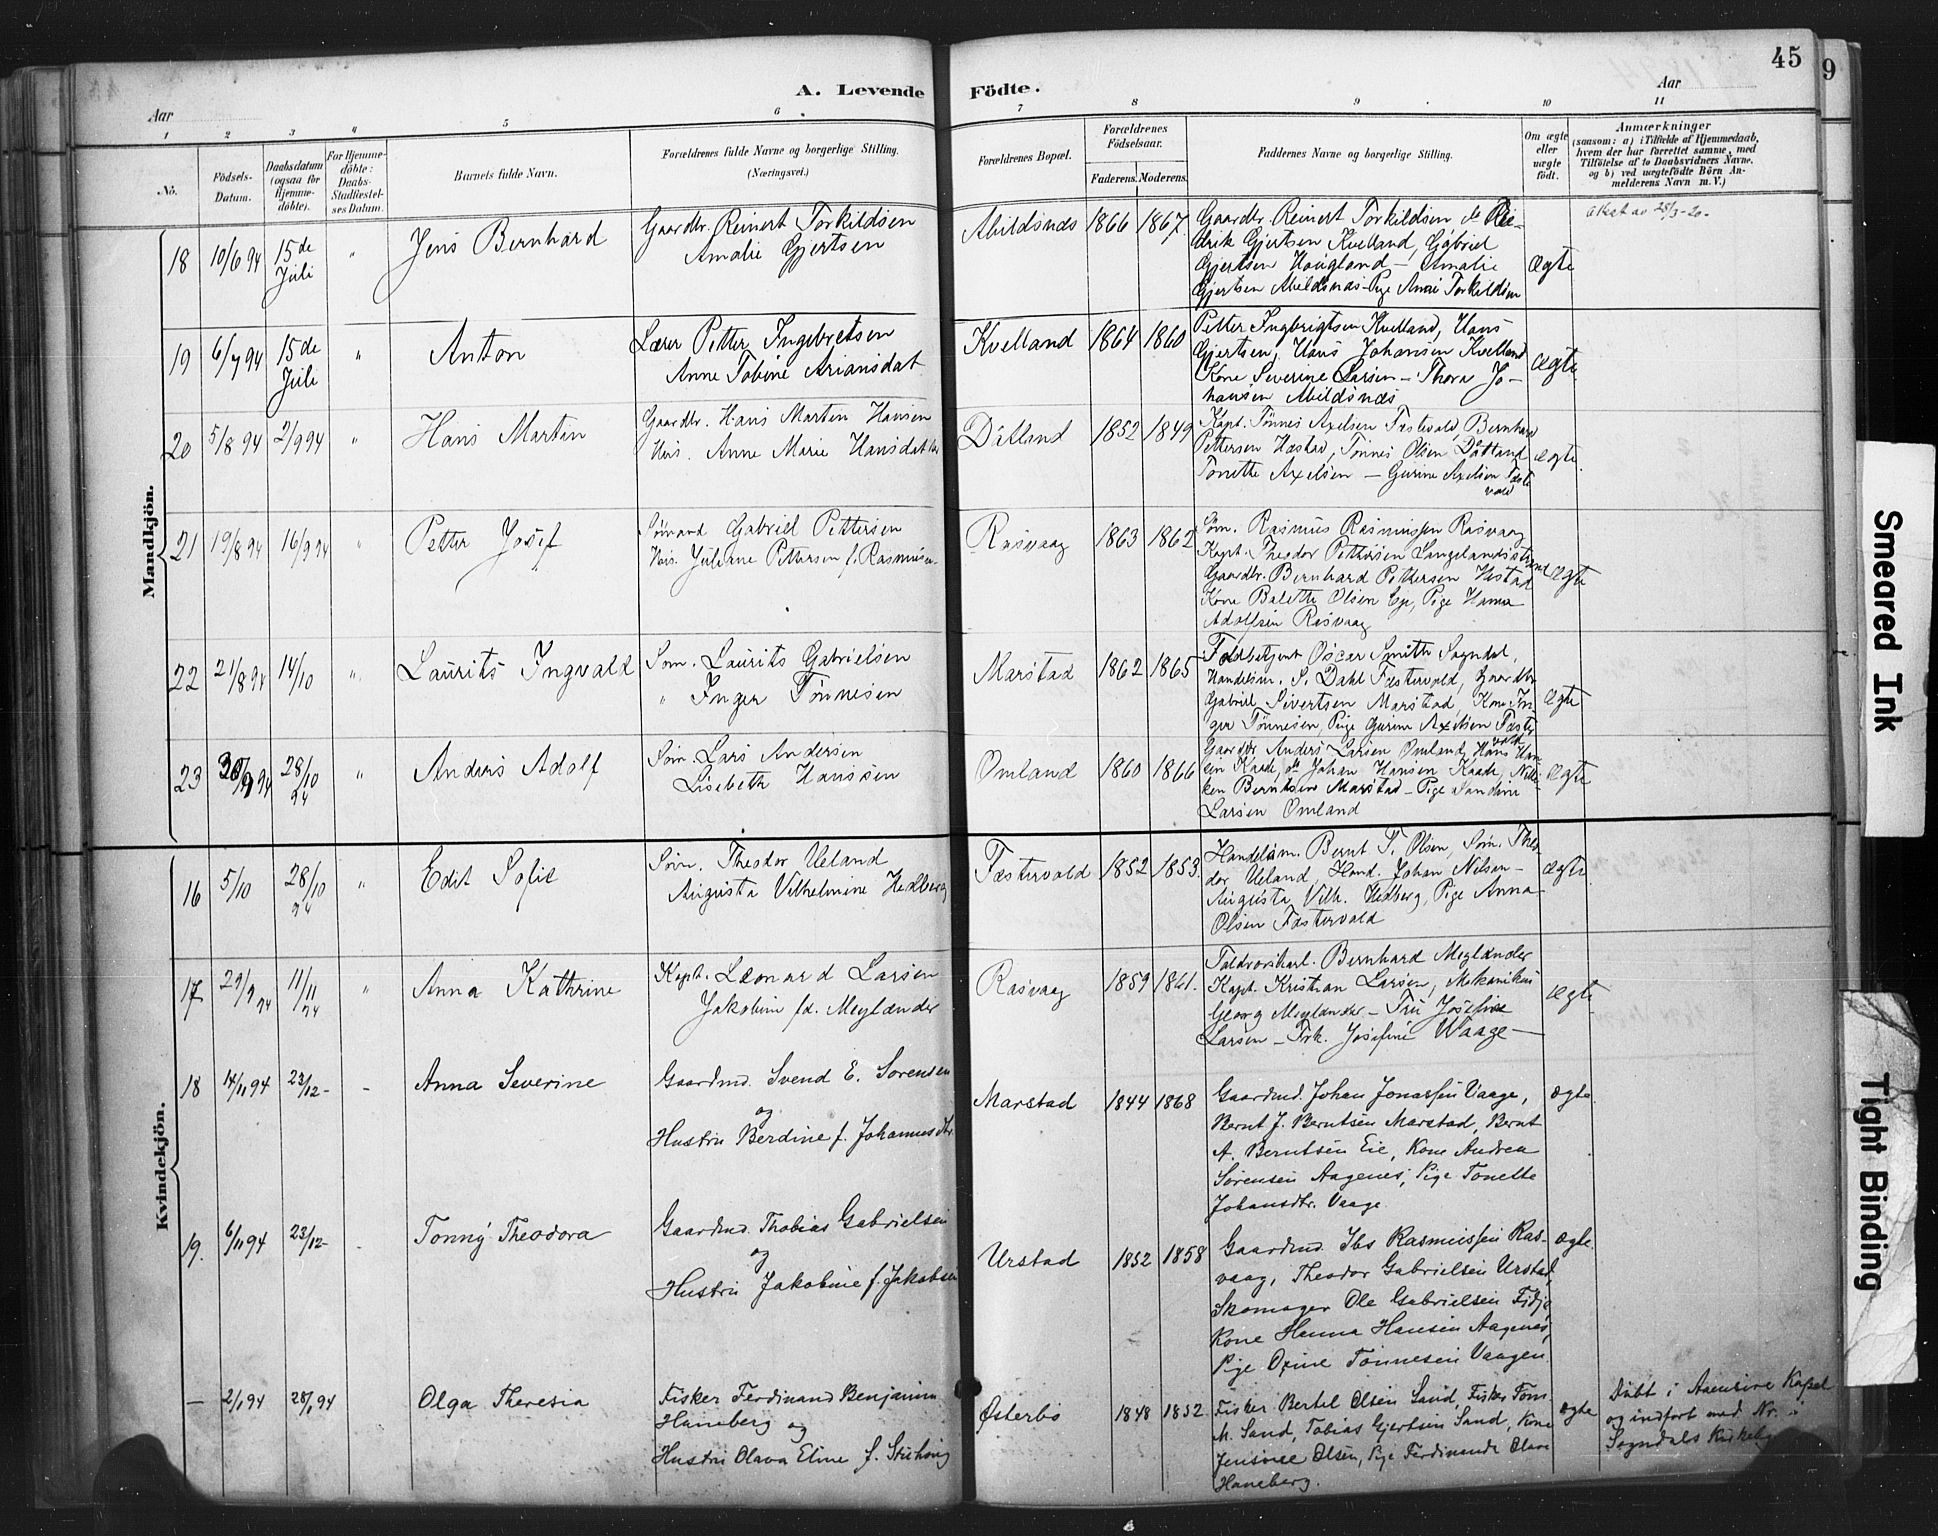 45
9
A. Levende Födte.
Aar
Aar
1 2 3 4 5 6 7 8 9 10 11
No.
Födsels-
Datum.
Daabsdatum
(ogsaa for
Hjemme-
döbte).
For Hjemme-
döbte:
Daabs-
Stadfæstel-
ses Datum.
Barnets fulde Navn.
Forældrenes fulde Navne og borgerlige Stilling.
(Næringsvei.)
Forældrenes Bopæl.
Forældrenes
Födselsaar.
Faderens. Moderens.
Faddernes Navne og borgerlige Stilling.
Om ægte
eller
uægte
födt.
Anmærkninger
(saasom: a) i Tilfælde af Hjemmedaab,
hvem der har forrettet samme, med
Tilföielse af to Daabsvidners Navne.
og b) ved uægtefödte Börn An-
melderens Navn m. V.)
Mandkjön.
18 10/6 94 15de Juli " Jens Bernhard
Gaardbr. Reinert Torkildsen
Amalie Gjertsen
Abildsnes 1866 1867
Gaardbr. Reinert Torkildsen
drik Gjertsen Kvelland, Gabriel
Gjertsen Haugland - Amalie
Gjertsen Abildsnes - Pige Torkildsen
Ægte
Attest av 28/3-20.
19 6/7 94 15de Juli " Anton
Lærer Petter Ingebretsen
Anne Tobine Ariansdat
Kvelland 1864 1860
Petter Ingbrigtsen Kvelland, Hans
Gjertsen, Hans Johansen Kvelland
Kone Severine Larsen - Thora Jo-
hansen Abildsnes
Ægte
20 5/8 94 2/9 94 " Hans Martin
Gaardbr. Hans Martin Hansen
Anne Marie Hansdat
Dåtland 1852 1849
Kapt. Tønnes Axelsen Fæstevold, Bernhard
Pettersen Hæstad, Tønnes Olsen Dåtland
Tonette Axelsen - Gurine Axelsen Fæste
vold
Ægte
21 19/8 94 16/9 94 " Petter Josef
Sømand Gabriel Pettersen
Juliane Pettersen f. Rasmusen
Rasvaag 1863 1862
Søm. Rasmus Rasmussen Rasvaag
Kapt. Theodor Pettersen Langelandsstrand
Gaardbr. Bernhard Pettersen Hæstad
Kone Balette Olsen Eje, Pige Hanna
Adolfsen Rasvaag
Ægte
22 21/8 94 14/10 " Laurits Ingvald
Søm. Laurits Gabrielsen
" Inger Tønnesen
Marstad 1862 1865
Oscar Smith Sogndal,
Handelsm. S. Dahl Fæstervold, Gaardbr
Gabriel Sivertsen Marstad, Kone In-
ger Tønnesen, Pige Gurine Axelsen Fæste
vold
Ægte
23 30/9 94 28/10 94 " Anders Adolf
Søm. Lars Andersen
Lisebeth Hanssen
Omland 1860 1866
Gaardbr Anders Larsen Omland, Hans Han-
sen Kaade, do Johan Hansen Kaade,
Berntsen Marstad - Pige Sandine
Larsen Omland
Ægte
Kvindekjön.
16 5/10 28/10 94 " Edit Sofie
Søm. Theodor Ueland
Augusta Vilhelmine Hedberg
Fæstervold 1852 1853
Handelsm. Bernt T. Olsen, Søm. Theo
dor Ueland, Hand. Johan Nilsen -
Augusta Vilh. Hedberg, Pige Anna
Olsen Fæstervold
Ægte
17 29/9 94 11/11 94 " Anna Kathrine
Kapt. Leonard Larsen
Jakobine fd. Meglænder
Rasvaag 1859 1861.
Bernhard Meglænder
Kapt. Kristian Larsen, Mekanikus
Georg Meglænder - Fru Josefine
Larsen - Frk. Josefine Waage -
Ægte
18 14/11 94 23/12 - - Anna Severine
Gaardmd. Svend E. Sørensen
og
Hustru Berdine f. Johannesdtr.
Marstad 1844 1868
Gaardmd. Johan Jonassen Vaage,
Bernt J. Berntsen Marstad, Bernt
A. Berntsen Eie, Kone Andrea
Sørensen Aagenes, Pige Tonette
Johansdtr. Vaage
ægte
19. 6/11 94 23/12 - - Tonny Theodora
Gaardmd. Thobias Gabrielsen
og
Hustru Jakobine f. Jakobsen
Urstad 1852 1858
Gaardmd. Ibs Rasmussen Ras-
vaag, Theodor Gabrielsen Urstad,
Skomager Ole Gabrielsen Fidje
Kone Hanna Hansen Aagenes,
Pige Oxine Tønnesen Vaagen.
ægte.
— 2/1 94 28/1 94 Olga Theresia
Fisker Ferdinand Benjamin
Haneberg og
Hustru Olava Eline f.
Østerbø 1848 1852.
Fisker Bertel Olsen Sand, Fisker Tom
M. Sand, Tobias Gjertsen Sand, Kone
Jensine Olsen, Pige Ferdinande Olava
Haneberg.
ægte
Døbt i Aaensire Kapel
og indført med Nr. i
Sogndals Kirkebog
Smeared Ink
Tight Binding